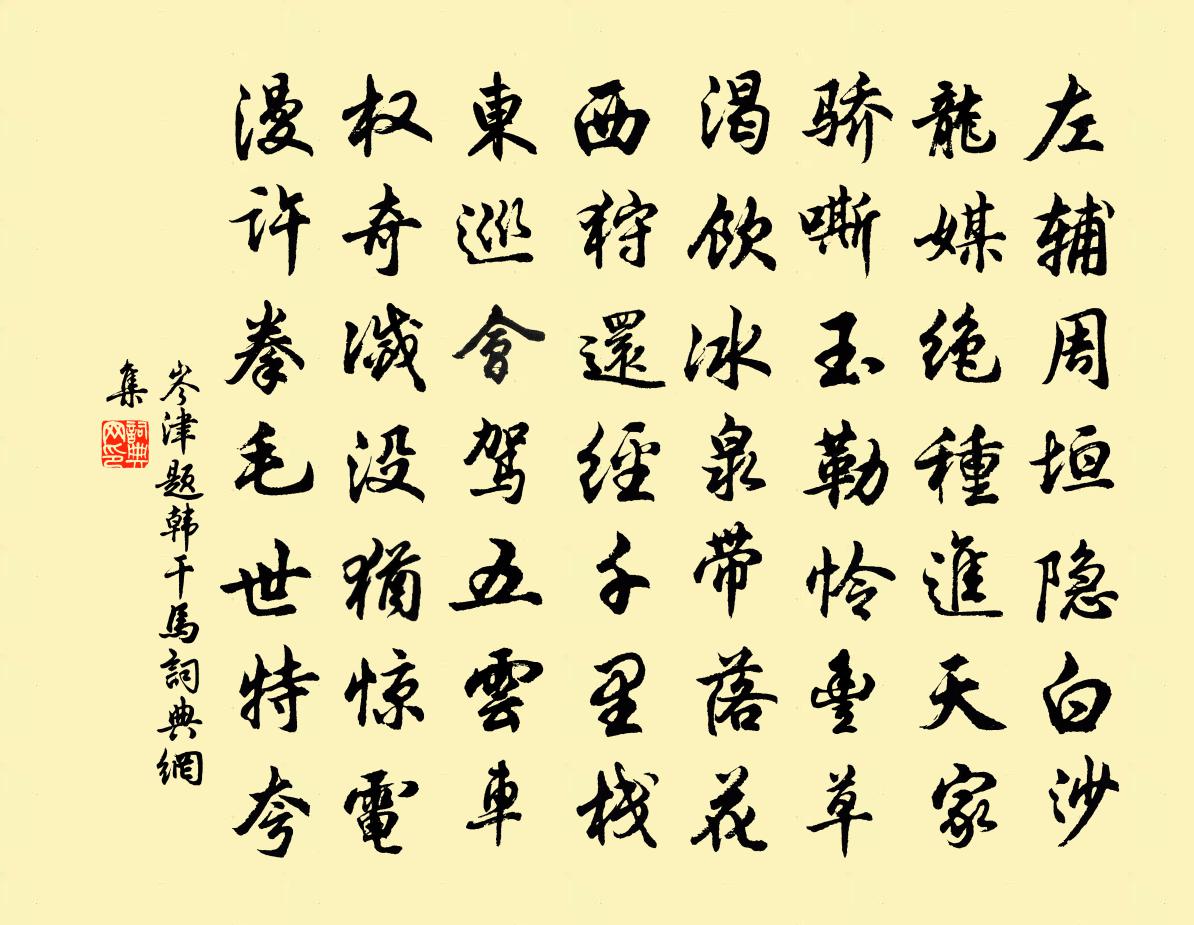 左辅周垣隐白沙
龍媒绝種進天家
骄嘶玉勒怜豊草
渴飲冰泉带落花
西狩還經千里栈
東巡會驾五雲車
权奇滅没猶惊電
漫许拳毛世特夸
岑津题韩干馬詞典網
集
詞典
网印